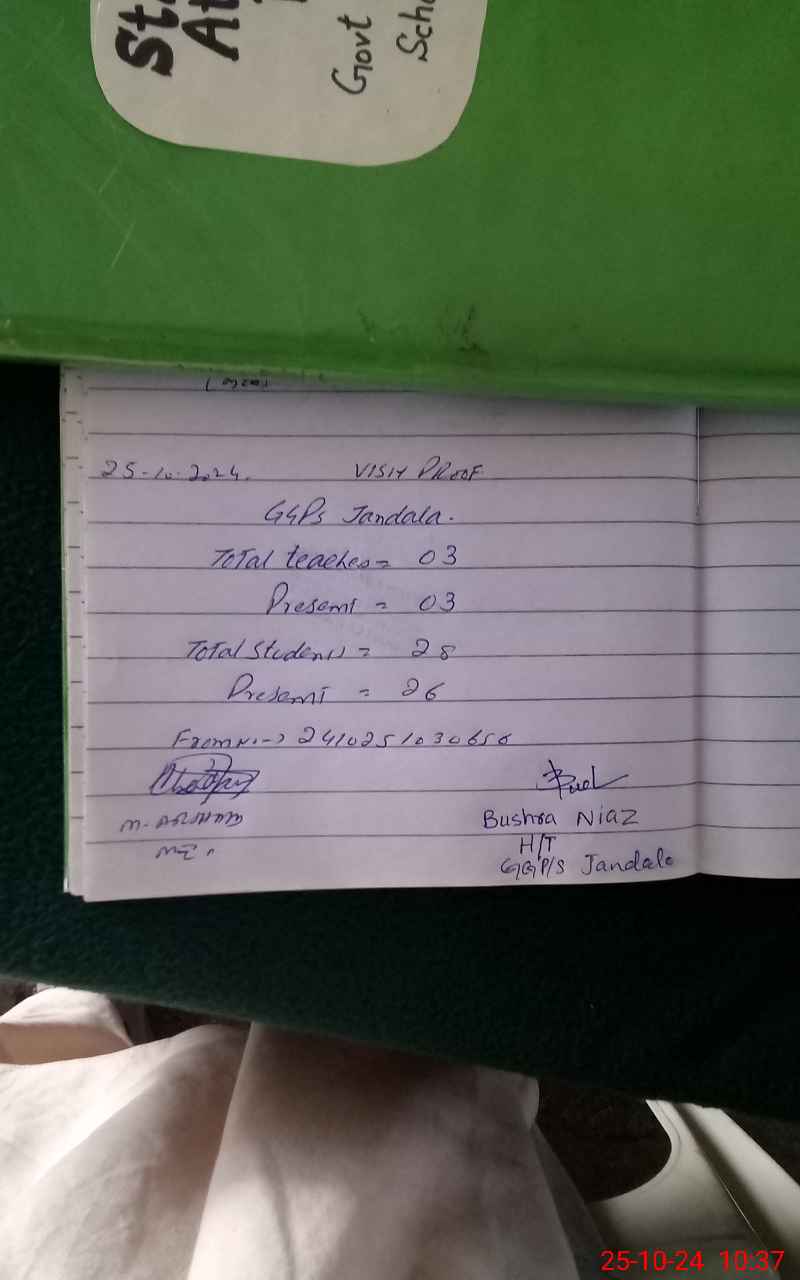 Govt
25-10-2024. VISIT PROOF
GGPS Jandala.
Total teaches = 03
Present = 03
Total Students = 28
Present = 26
2410251030656
Bushra Niaz
H/T
GGP/S Jandala
25-10-24 10:37